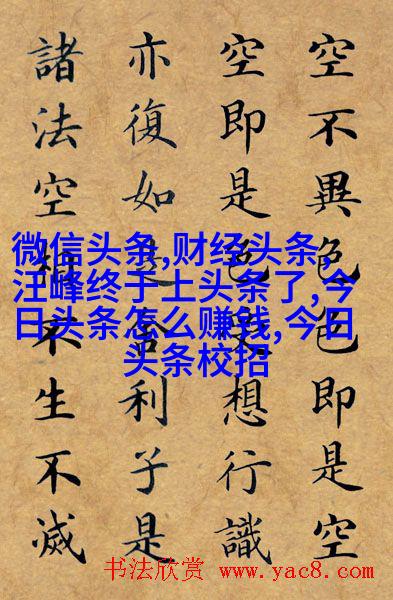 空不異色色即是空
空即是色受想行識
亦復如是舍利子是
諸法空相不生不滅
微信头条,财经头条,
汪峰终于上头条了,今
日头条怎么赚钱,今日
头条校招
书法欣赏 www.yac8.com